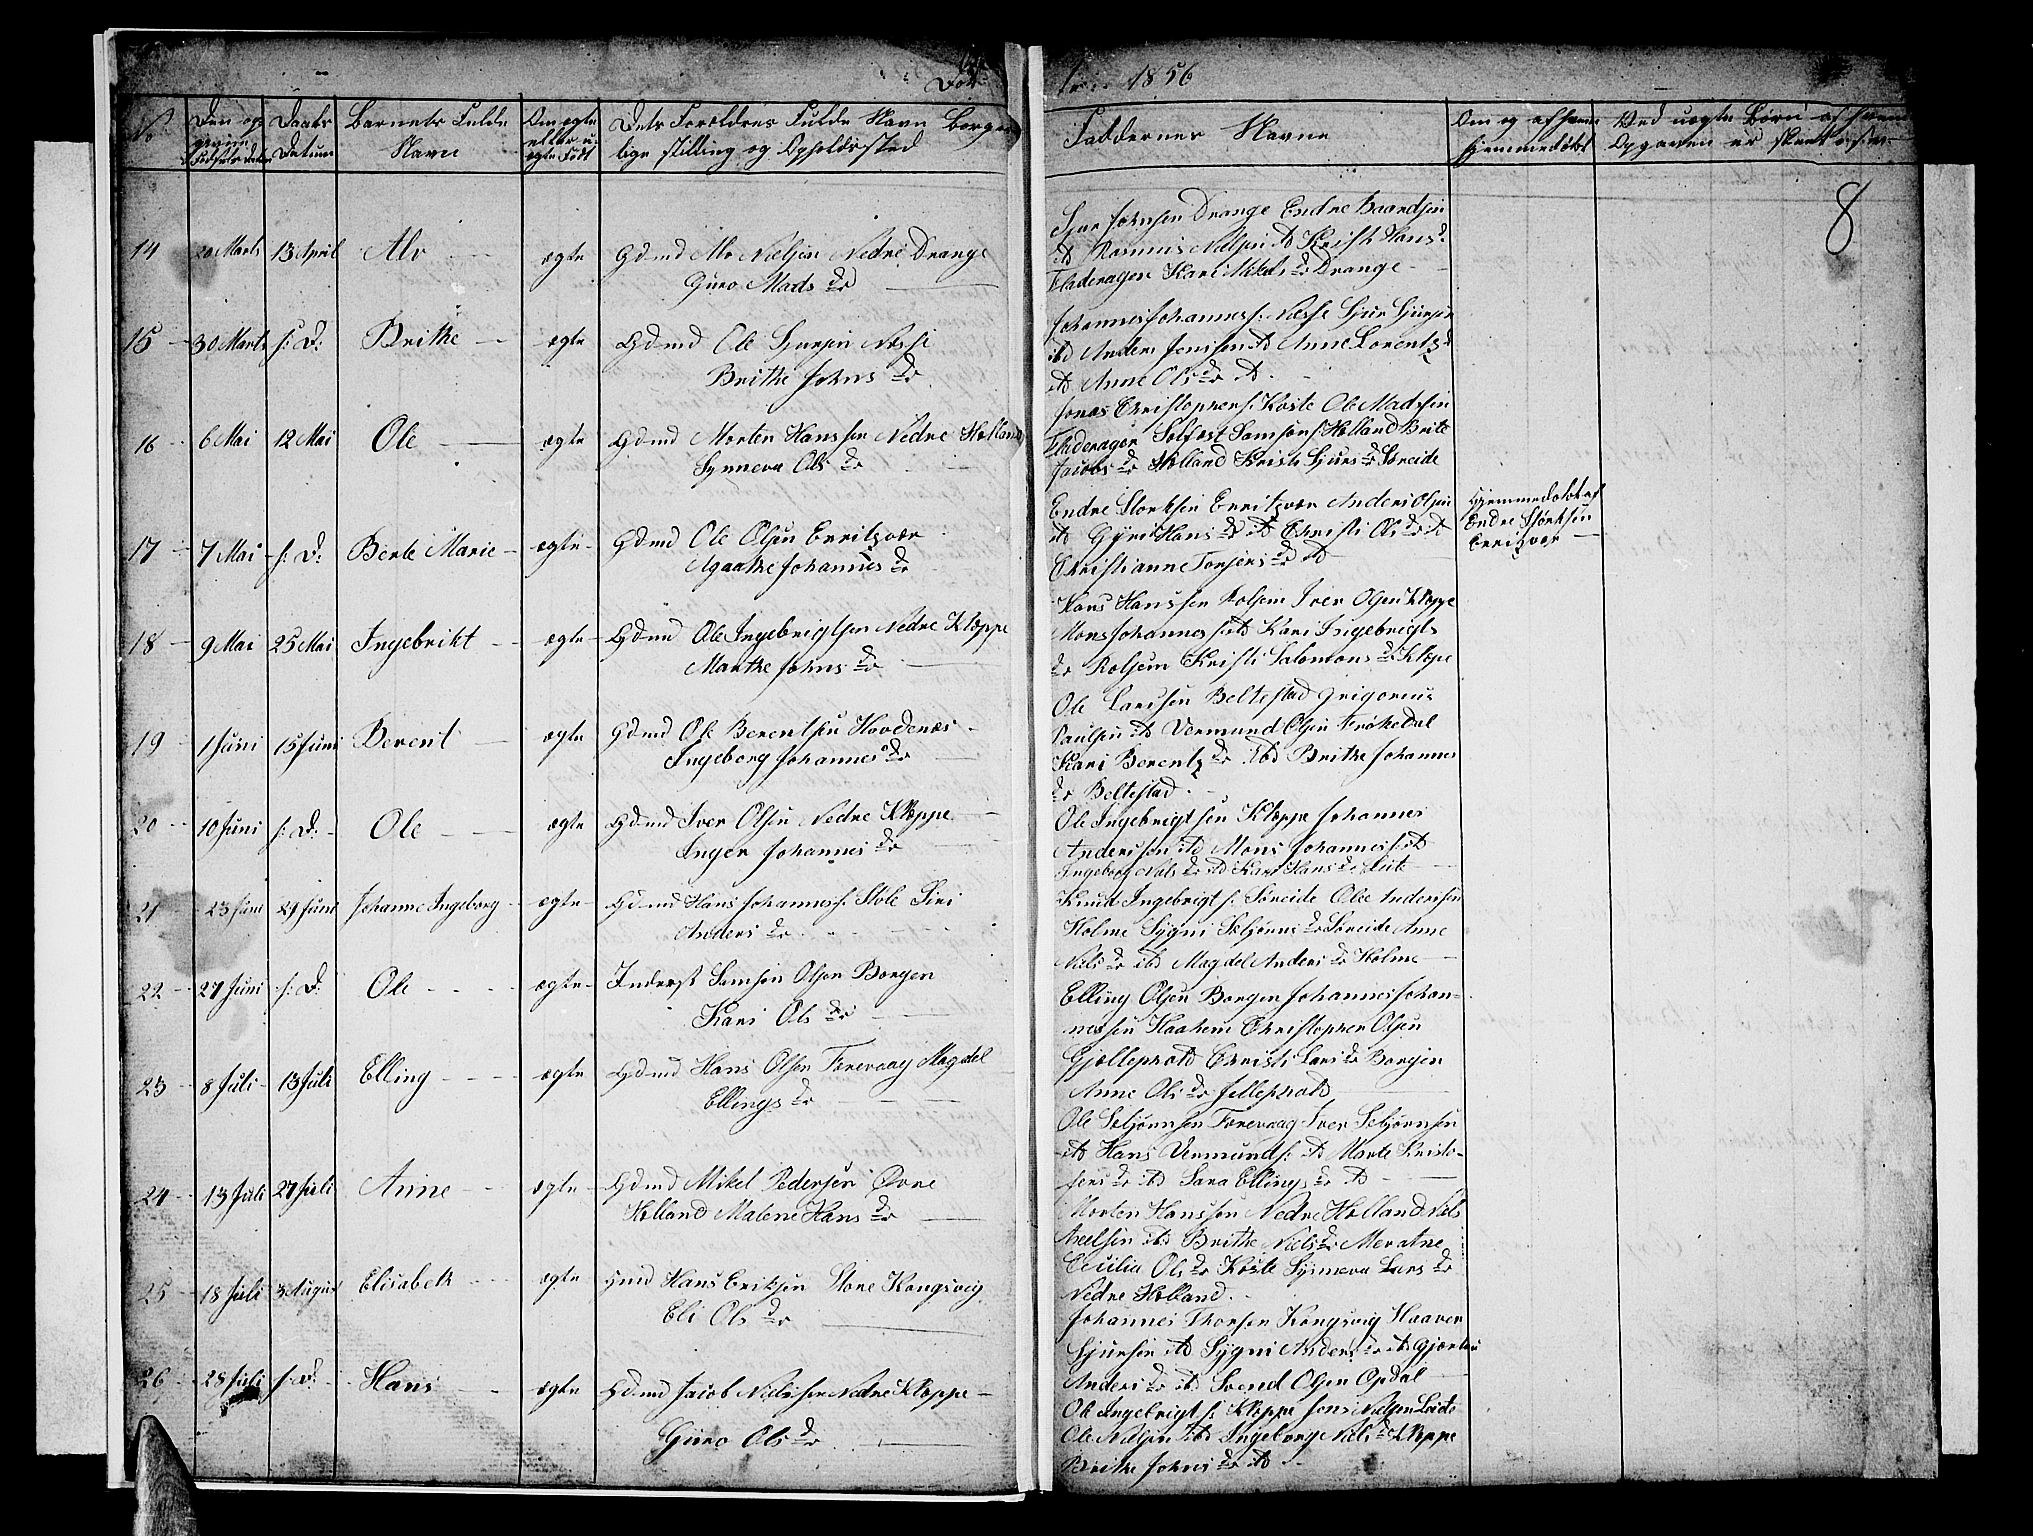 1856
No
Den op
givne
Fødsels datum
Daabs
Datum
Barnets Fulde
Navn
Om ægte
eller u-
ægte Født
Dets Foreldres Fulde Navn Borger
lige stilling og Opholdssted
Faddernes Navne
Om og af hvem
hjemmedøbt
Ved uægte Børn af hvem
Opgaven er skeet
8
14 20 Marts 13 April Alv ægte Gdmd Alv Nielsen Nedre Drange
Guro Mads dr
Sjur Johnsen Drange Endre Baardsen
itd Rasmus Nielsen itd Kristi Hans d
Fladeragen Kari Mikels dr Drange
15 30 Marts s: D: Brithe ægte Gdmd Ole Sjursen Næsse
Brithe Johns dr
Johannes Johanness: Næsse Sjur Sjursen
ibd Anders Jenssen itd Anne Lorentz d
itd Anne Ols dr itd
16 6 Mai 12 Mai Ole ægte Gdmd Morten Hanssen Nedre Holland
Synneva Ols dr
Jonas Christophers: Koste Ole Madssen
Fladerager Solfæst Samsons: Holland Brite
Jacobs dr Holland Kristi Sjurs dr Søreide
17 7 Mai s: D: Berte Marie ægte Gdmd Ole Olsen Erritzvær
Agathe Johannes dr
Endre Storksen Erritzvær Anders Olsen
itd Gjøri Hans dr itd Christi Ols dr itd
Christianne Torgers dr itd
Hjemmedøbt af
Endre Storksen
Erritzvær
18 9 Mai 25 Mai Ingebrikt ægte Gdmd Ole Ingebrigtsen Nedre Kleppe
Marthe Johns dr
Hans Hanssen Kolsem Iver Olsen Kleppe
Mons Johanness: itd Kari Ingebrigts
dr Kolsem Kristi Salomons dr Kleppe
19 1 Juni 15 Juni Berent ægte Gdmd Ole Berentsen Hovdenæs
Ingeborg Johannes dr
Ole Larssen Beltestad Grigorius
Paulsen itd Vermund Olsen Frøkedal
Kari Berentz dr ibd Brithe Johannes
dr Beltestad
20 10 Juni s: D: Ole ægte Gdmd Iver Olsen Nedre Kleppe
Inger Johannes dr
Ole Ingebrigtsen Kleppe Johannes
Anderssen itd Mons Johanness: itd
Ingeborg Niels dr itd Kari Hans dr Leite
21 23 Juni 29 Juni Johanne Ingeborg ægte Gdmd Hans Johanness: Stole Siri
Anders dr
Knud Ingebrigts: Søreide Ole Anderssen
Holme Sygni Sebjønns dr Søreide Anne
Niels dr ibd Magdel Anders dr Holme
22 27 Juni s: D: Ole ægte Inderst Samson Olsen Borgen
Kari Ols dr
Elling Olsen Borgen Johannes Johan=
nessen Haahem Christopher Olsen
Gjelleprold Christi Lars dr Borgen
Anne Ols dr Jelleprold
23 8 Juli 13 Juli Elling ægte Gdmd Hans Olsen Forevaag Magdel
Ellings dr
Ole Sebjønnsen Forevaag Iver Sebjørnsen
itd Hans Vermunds: itd Marte Kristo-
fers dr itd Sara Ellings dr itd
24 13 Juli 27 Juli Anne ægte Gdmd Mikel Pedersen Øvre
Holland Malene Hans dr
Morten Hanssen Nedre Holland Niels
Axelsen ibd Brithe Niels dr
Cecilia Ols dr Koste Synneva Lars dr
Nedre Holland
25 18 Juli 3 August Elisabeth ægte Hmd Hans Eriksen Store Kongsvig
Eli Ols dr
Johannes Thorsen Kongsvig Haaver
Sjursen itd Sygni Anders dr itd Gjærtru
Anders dr itd Svend Olsen Opdal
26 28 Juli s: D: Hans ægte Gdmd Jacob Nielssen Nedre Kleppe
Guro Ols dr
Ole Ingebrigts: Kleppe Jens Nielsen Leite
Ole Nielsen ibd Ingeborg Niels d Kleppe
Brithe Johns dr itd